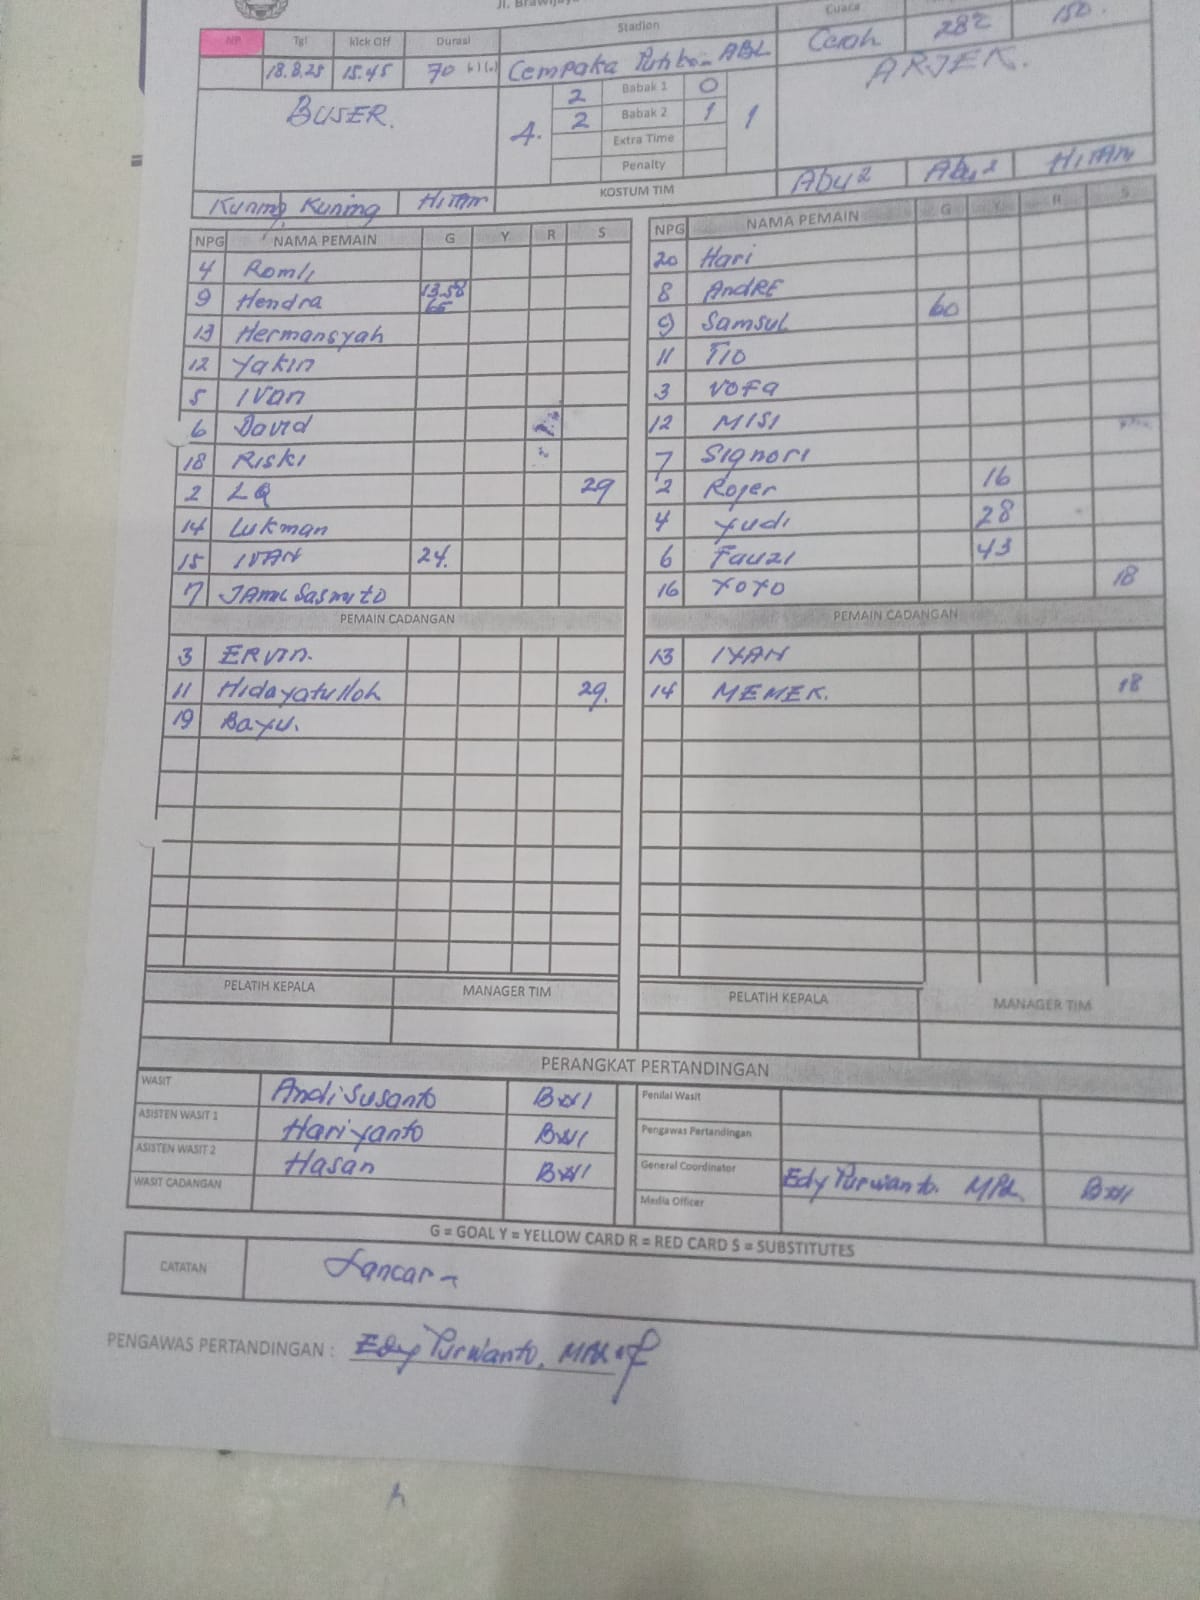 Jl. Brawijaya
NP Tgl Kick Off Durasi Stadion Cuaca
18.8.25 15.45 70 Cempaka ABL 282 150.
BUSER. 4. 2 Babak 1 0 1 ARJEK.
2 Babak 2 1
Extra Time
Penalty
Kuning Kuning HITAM KOSTUM TIM Abu2 Abu2 HITAM
NPG NAMA PEMAIN G Y R S NPG NAMA PEMAIN G Y R S
4 Romli 20 Hari
9 Hendra 13.58 65 8 AndRE
13 Hermansyah 9 Samsul 60
12 Yakin 11 TIO
5 IVan 3 VOFA
6 David 12 MISI
18 RISKI 7 Signori
2 LQ 29 2 Rojer 16
14 Lukman 4 Yudi 28
15 IVAN 24. 6 Fauzi 43
7 16 YOYO 18
PEMAIN CADANGAN PEMAIN CADANGAN
3 ERVIN. 13 IYAN
11 Hidayatulloh 29. 14 MEMEK. 18
19 Bayu.
PELATIH KEPALA MANAGER TIM PELATIH KEPALA MANAGER TIM
PERANGKAT PERTANDINGAN
WASIT Andi Susanto BWI Penilai Wasit
ASISTEN WASIT 1 Hariyanto BWI Pengawas Pertandingan
ASISTEN WASIT 2 Hasan BWI General Coordinator Edy Purwanto. MPd. BWI
WASIT CADANGAN Media Officer
G = GOAL Y = YELLOW CARD R = RED CARD S = SUBSTITUTES
CATATAN Lancar -
PENGAWAS PERTANDINGAN : Edy Purwanto, MPd.